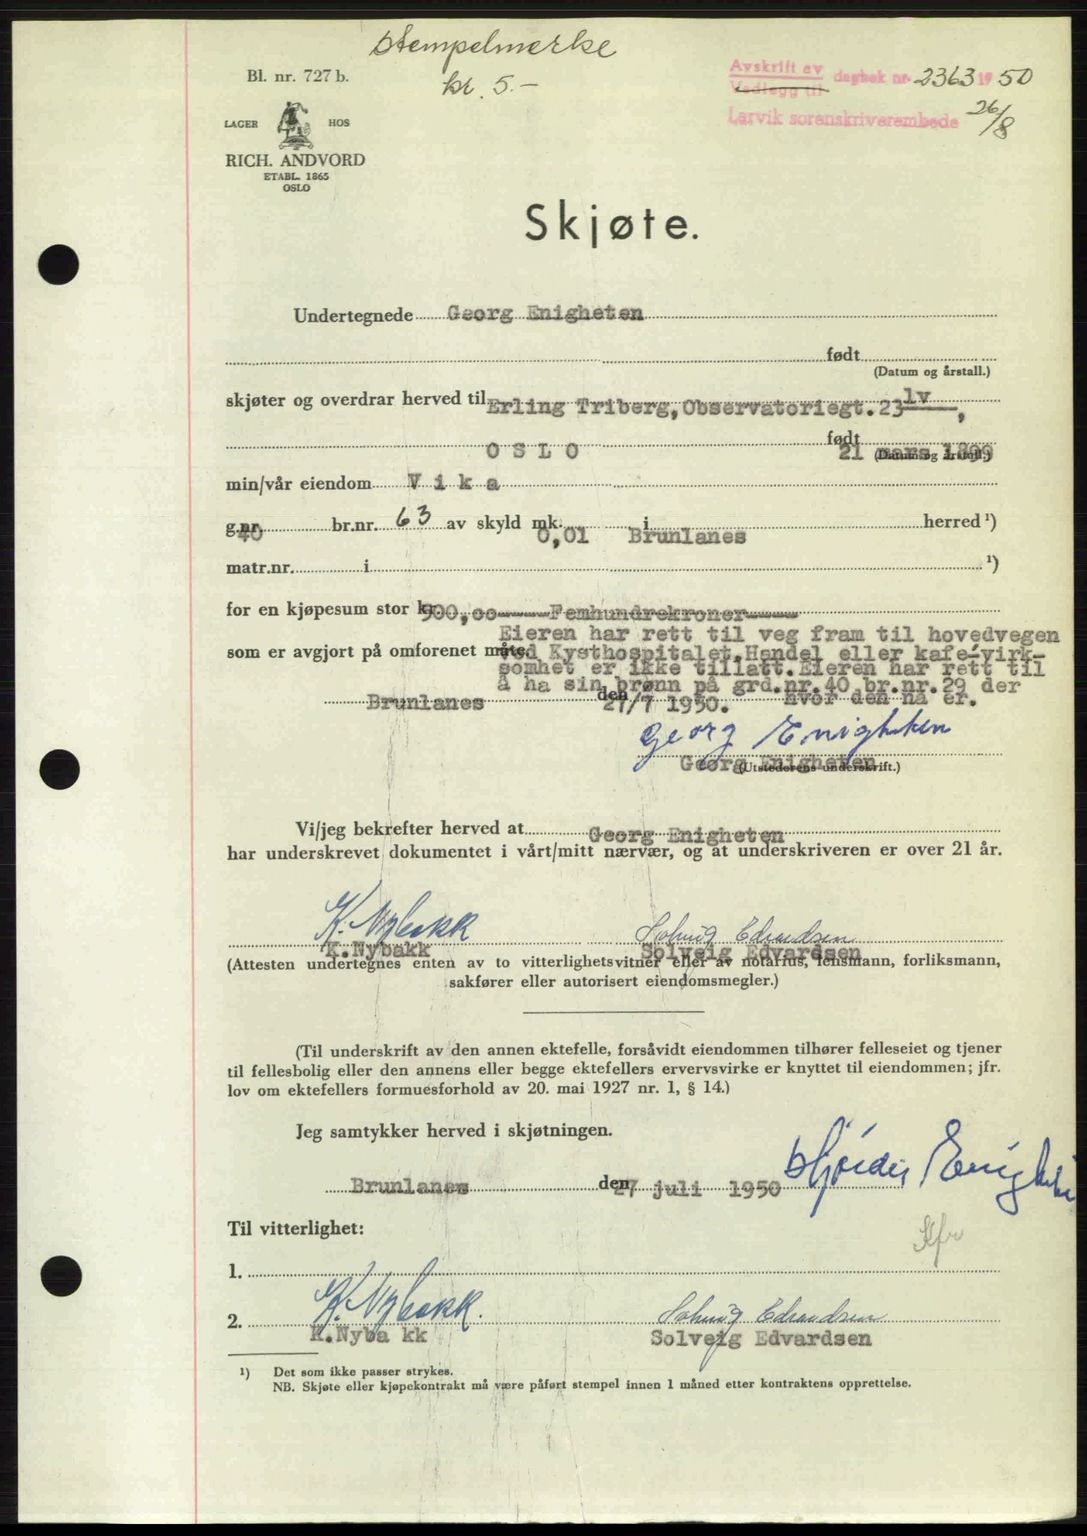 Stempelmerke
kr. 5.-
Bl. nr. 727 b.
Avskrift av
Vedlegg til
dagbok nr. 2363 1950
Larvik sorenskriverembede 26/8
LAGER HOS
RICH. ANDVORD
ETABL. 1865
OSLO
Skjøte.
Undertegnede Georg Enigheten
født
(Datum og årstall.)
skjøter og overdrar herved til Erling Triberg, Observatoriegt. 23 lv,
O S L O født 21 mars 1899
(Datum og årstall.)
min/vår eiendom V i k a
g.nr. 40 br.nr. 63 av skyld mk. 0,01 i Brunlanes herred ¹)
matr.nr. i ¹)
for en kjøpesum stor kr. 500,00----Femhundrekroner----
som er avgjort på omforenet måte.
Eieren har rett til veg fram til hovedvegen
ved Kysthospitalet. Handel eller kafe-virk-
somhet er ikke tillatt. Eieren har rett til
å ha sin brønn på grd.nr. 40 br.nr. 29 der
hvor den nå er.
Brunlanes den 27/7 1950.
Georg Enigheten
Georg Enigheten
(Utstederens underskrift.)
Vi/jeg bekrefter herved at Georg Enigheten
har underskrevet dokumentet i vårt/mitt nærvær, og at underskriveren er over 21 år.
K. Nybakk Solveig Edvardsen
K.Nybakk Solveig Edvardsen
(Attesten undertegnes enten av to vitterlighetsvitner eller av notarius, lensmann, forliksmann,
sakfører eller autorisert eiendomsmegler.)
(Til underskrift av den annen ektefelle, forsåvidt eiendommen tilhører felleseiet og tjener
til fellesbolig eller den annens eller begge ektefellers ervervsvirke er knyttet til eiendommen; jfr.
lov om ektefellers formuesforhold av 20. mai 1927 nr. 1, § 14.)
Jeg samtykker herved i skjøtningen.
Brunlanes den 27 juli 1950 Hjördis Enigheten
Til vitterlighet:
1.
K. Nybakk. Solveig Edvardsen
2.
K.Nyba kk Solveig Edvardsen
¹) Det som ikke passer strykes.
NB. Skjøte eller kjøpekontrakt må være påført stempel innen 1 måned etter kontraktens opprettelse.